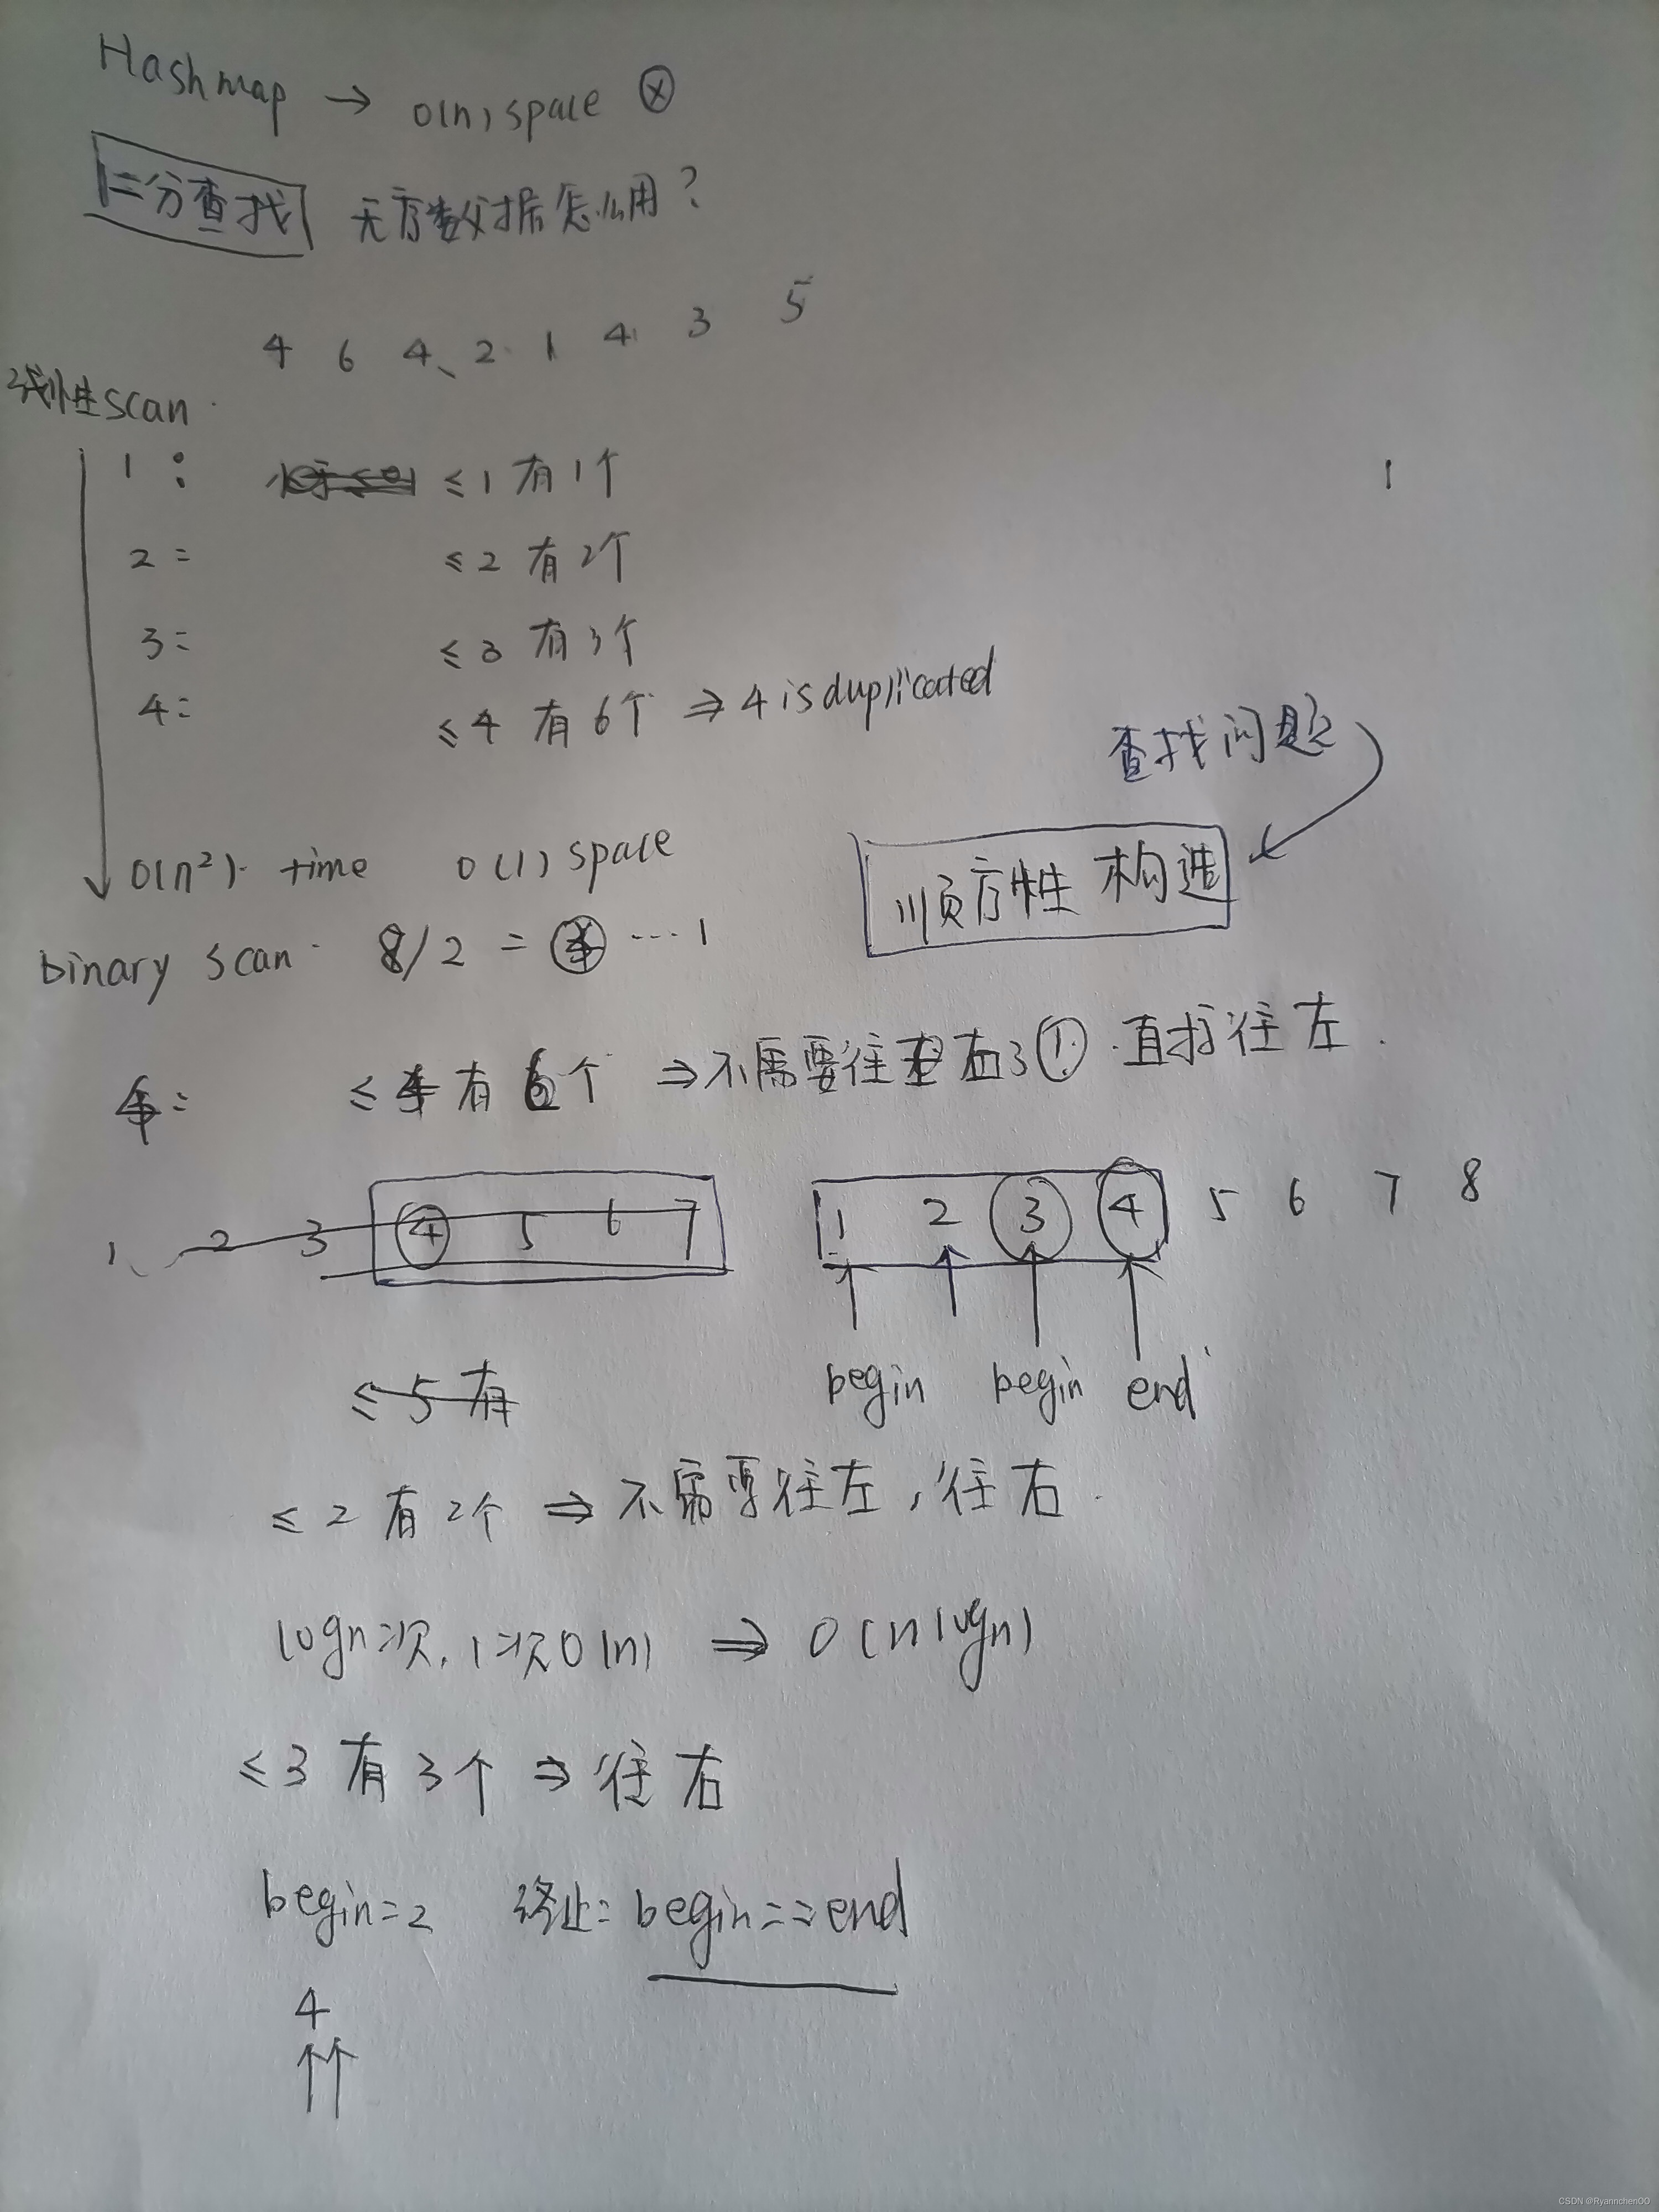 Hashmap → O(n) space ⊗
二分查找 无序数据怎么用?
4 6 4 2 1 4 3 5
线性scan
1: ≤1有1个
2: ≤2有2个
3: ≤3有3个
4: ≤4有6个 ⇒ 4 is duplicated
查找问题
顺序性 构造
O(n²) time O(1) space
binary scan 8/2 = 4 … 1
4: ≤4有6个 ⇒ 不需要往右了! 直接往左.
1 2 3 4 5 6 7
1 2 3 4 5 6 7 8
begin begin end
≤5有
≤2有2个 ⇒ 不需要往左, 往右.
logn次, 1次O(n) ⇒ O(nlogn)
≤3有3个 ⇒ 往右
begin=2 终止: begin==end
4
↑↑
CSDN @Ryannchen00